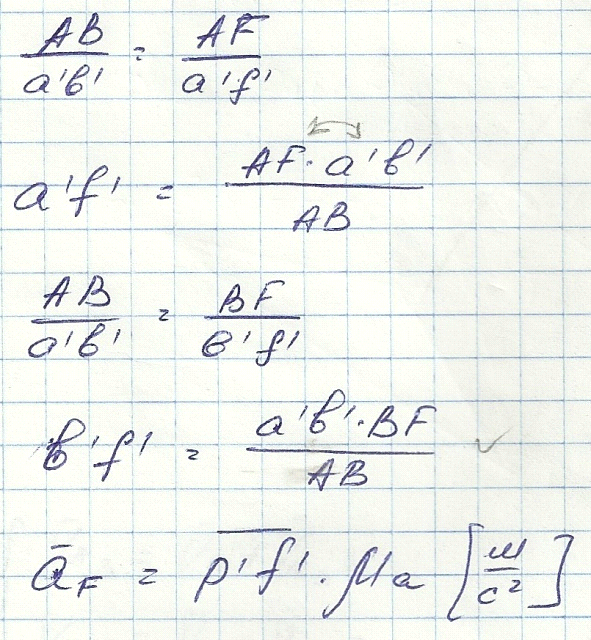 AB/a'b' = AF/a'f'
a'f' = AF·a'b'/AB
AB/a'b' = BF/b'f'
b'f' = a'b'·BF/AB
ā_F = p̅'̅f̅'̅·μa [м/с²]